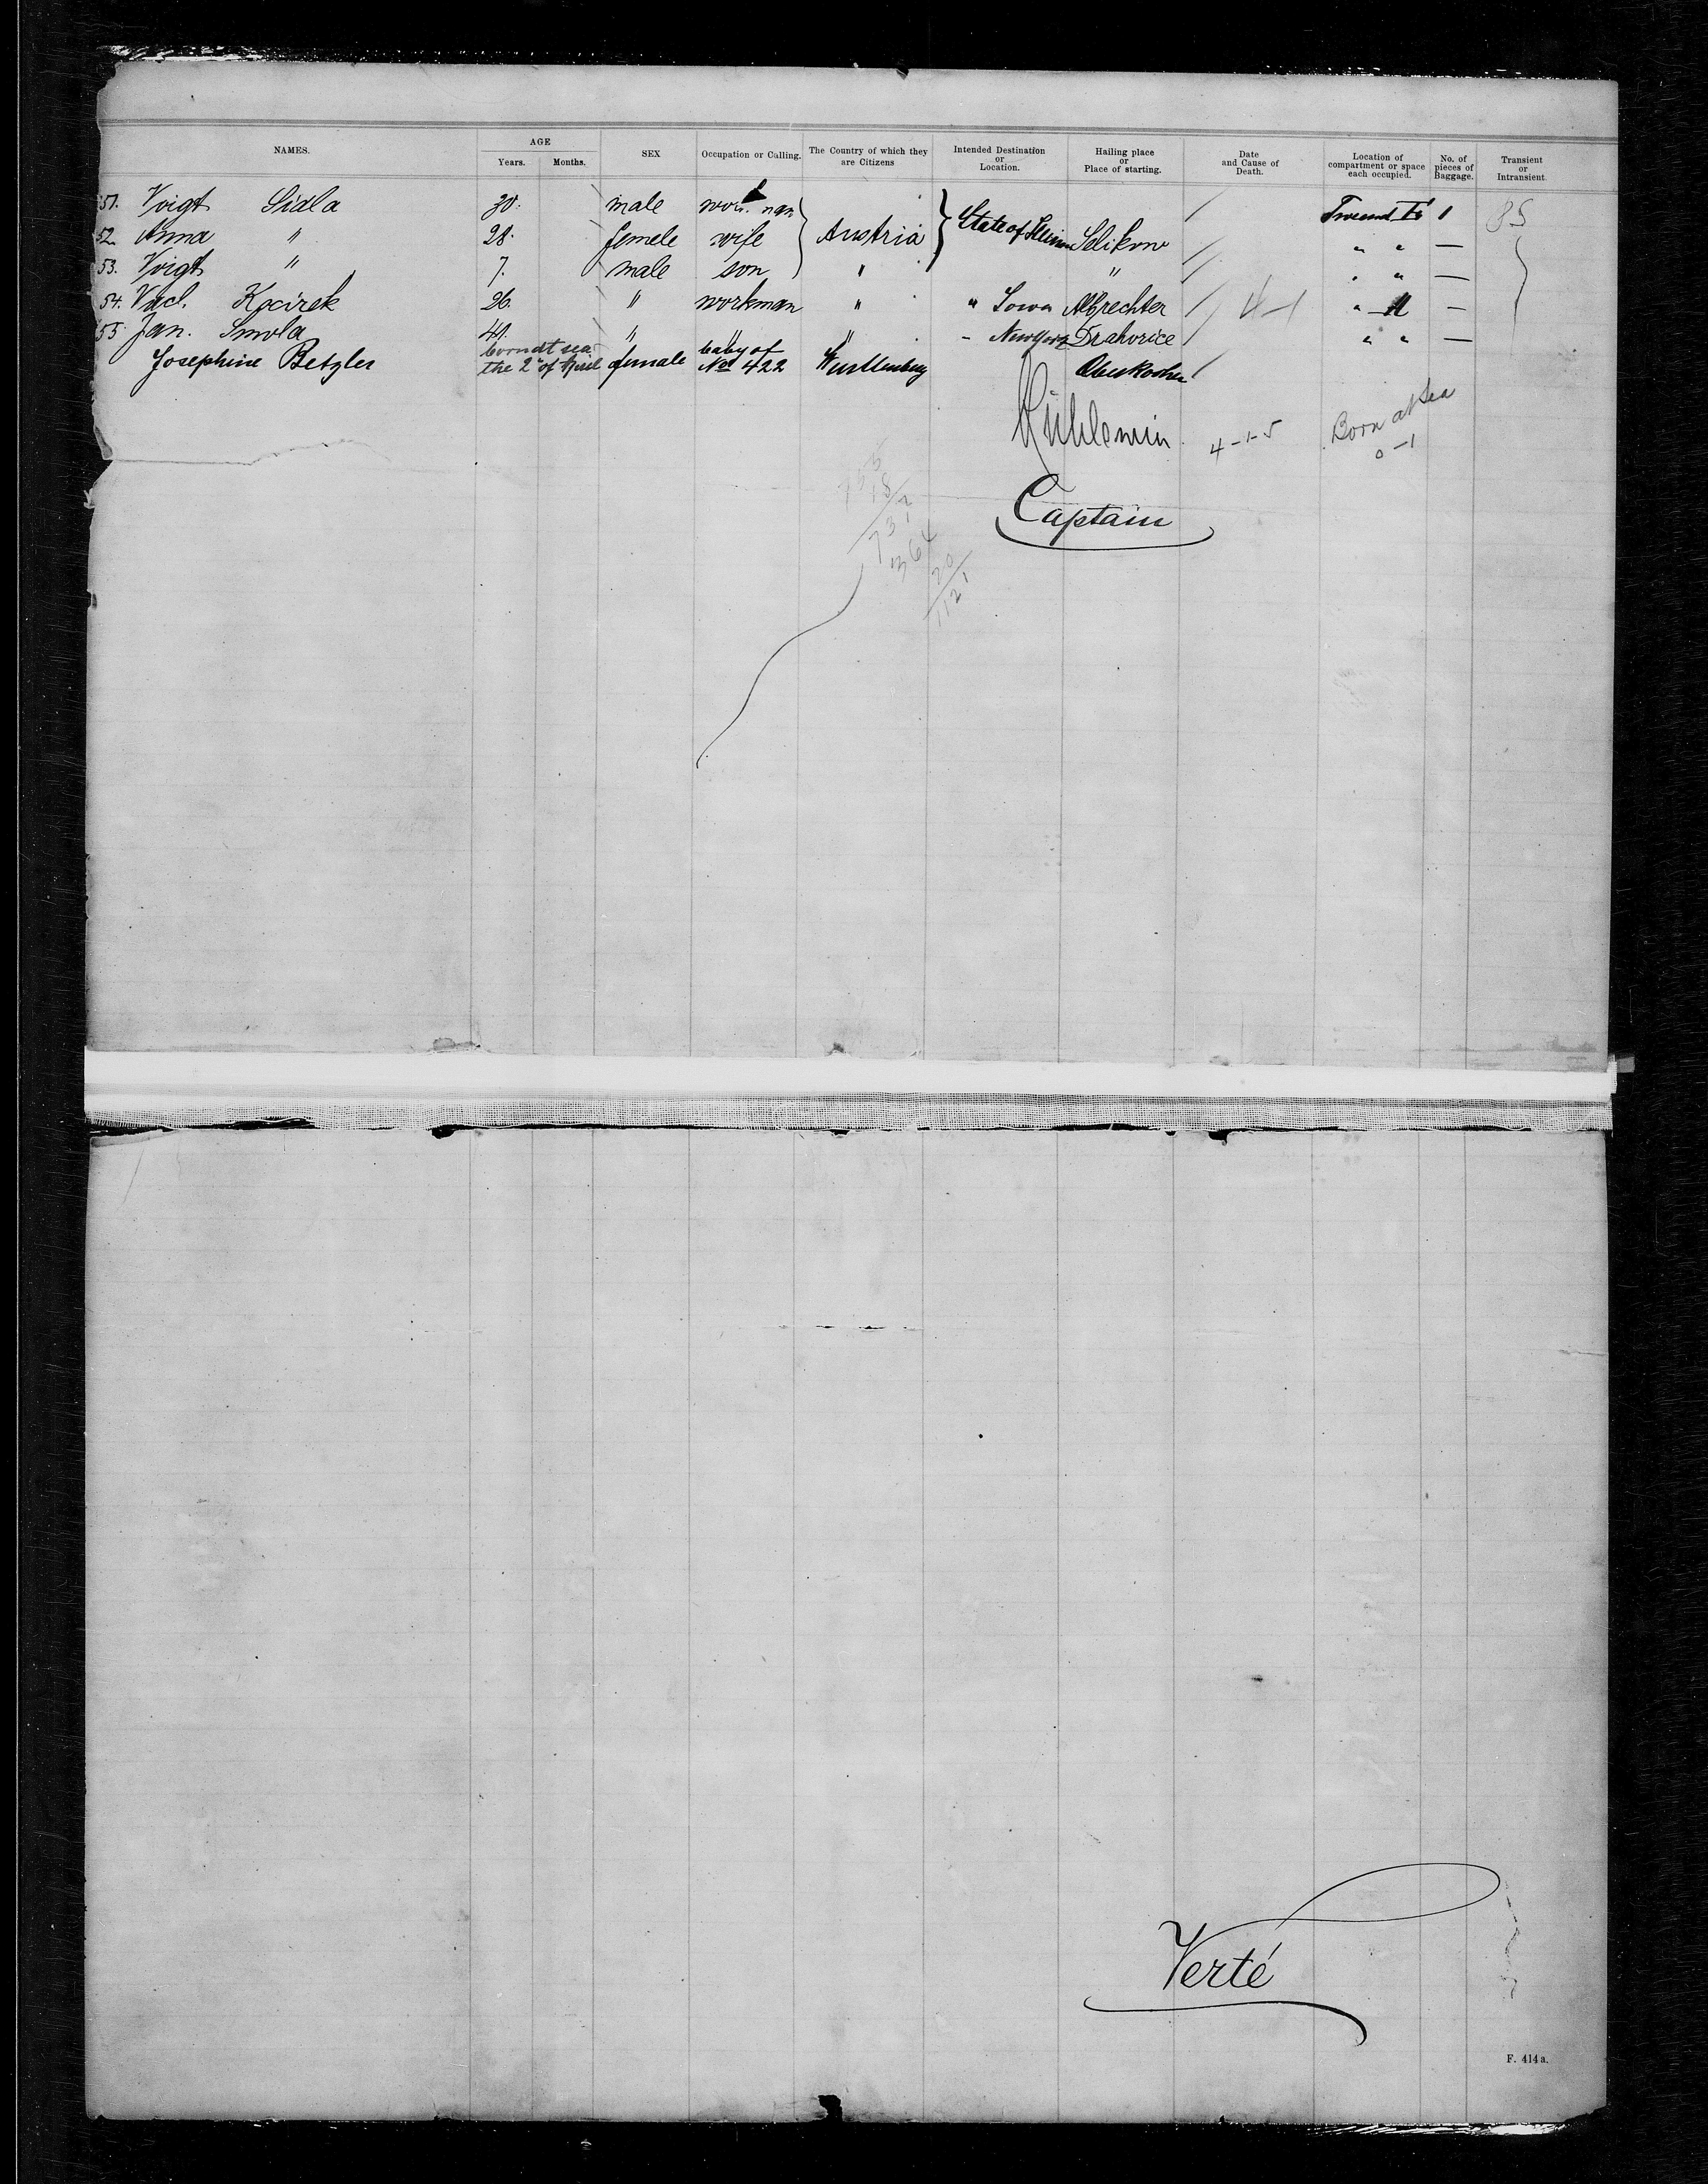 NAMES. AGE Years. Months. SEX Occupation or Calling. The Country of which they are Citizens Intended Destination or Location. Hailing place or Place of starting. Date and Cause of Death. Location of compartment or space each occupied. No. of pieces of Baggage. Transient or Intransient.
51. Voigt Sidla 30. male Austria State of 1 85
52. Anna " 28. femele wife Selikow " " —
53. Voigt " 7. male son " " " " —
54. Vacl. Kocirek 26. " workman " " Iowa Albrechter 4-1 " —
55 Jan. Smola 49. " " " " Drahorice " " —
Josephine Betzler born at sea the 2" of April female baby of No 422 Wurttemberg
4-1-5 Born at Sea
0-1
Captain
755
18
737
364
20
1121
Verté
F. 414a.